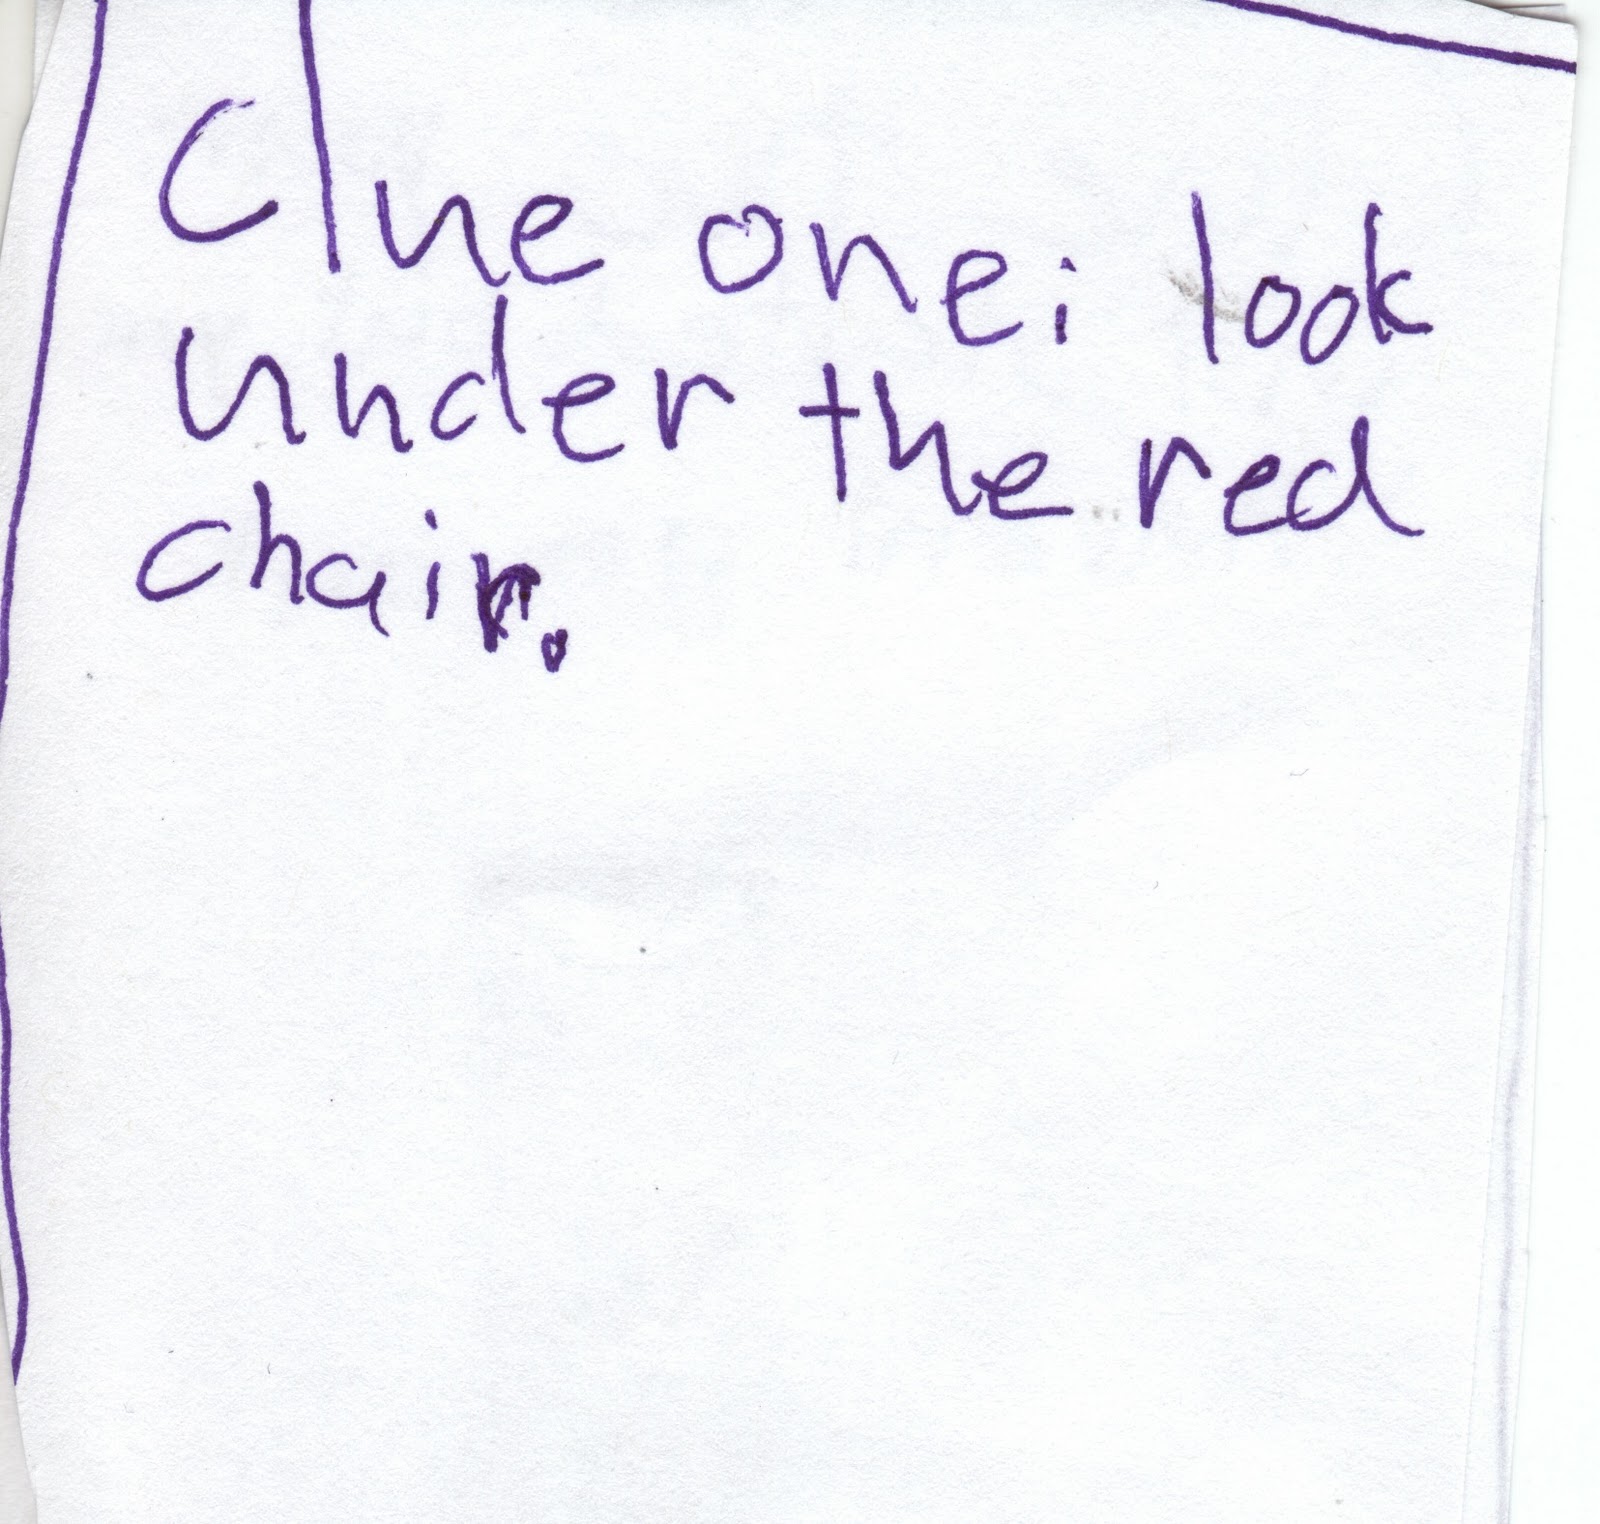 Clue one: look
under the red
chair.